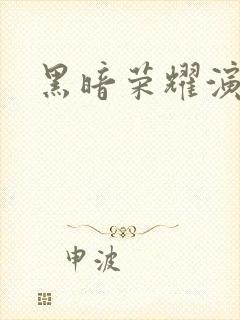 黑暗荣耀演
申波